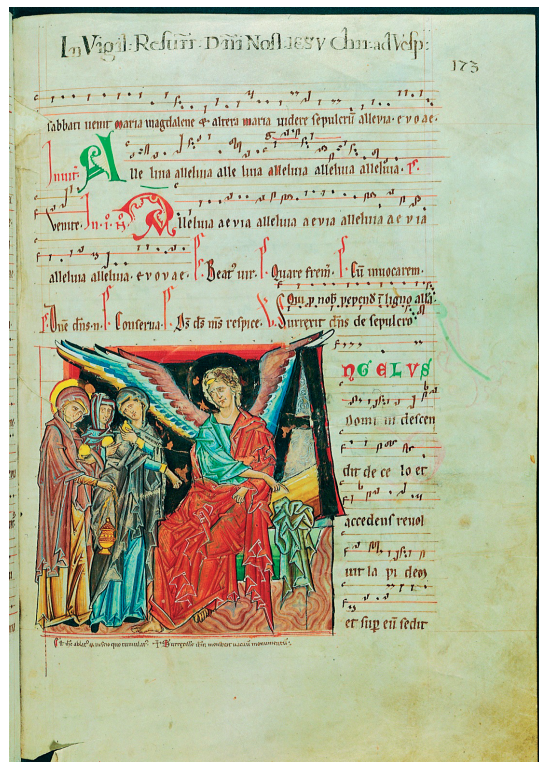 In Vigil: Resurr: Dni Nost Iesv Chri: ad Vesp:
173
sabbati uenit maria magdalene & altera maria uidere sepulcru alleuia · e v o a e ·
Inuit. Alle luia alleluia alle luia alleluia alleluia alleluia alleluia.
Venite. In · i · Alleluia ae v ia alleluia a e v ia alleluia a e v ia
alleluia alleluia · e v o v a e · Beat' uir. Quare frem. Cu inuocarem.
Qui p nob pepend i ligno alla.
Dne dns n. Conserua. Ds ds ms respice. Surrexit dns de sepulcro
ANGELVS
domi ni descen
dit de ce lo et
accedens reuol
uit la pi dem
et sup eu sedit